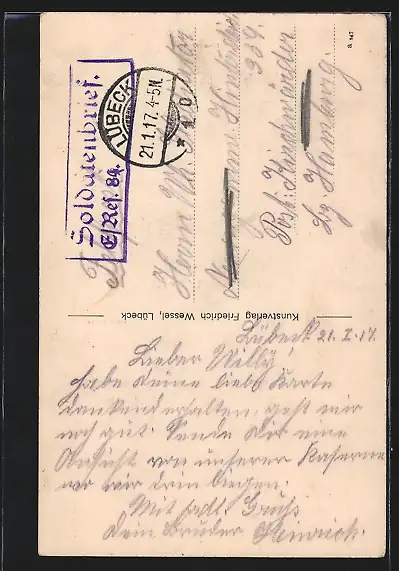 Soldatenbrief.
E/Res. 84.
LÜBECK
21.1.17. 4-5N.
* 1 o
Herrn
339.
Post: Finkenwärder
Hamburg.
G. 147
Kunstverlag Friedrich Wessel, Lübeck
Lübeck 21. I. 17.
Lieber Willy!
habe deine liebe Karte
dankend erhalten, geht mir
noch gut. Sende dir eine
Ansicht von unserer Kaserne
wo wir drin liegen.
Mit Gruß
dein Bruder Heinrich.